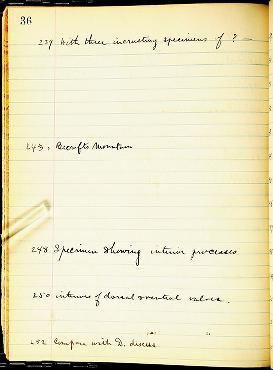 36
239 With three incrusting specimens of ? —
243. Becrafts Mountain
248 Specimen showing interior processes
250 interiors of dorsal & ventral valves.
252 Compare with D. discus